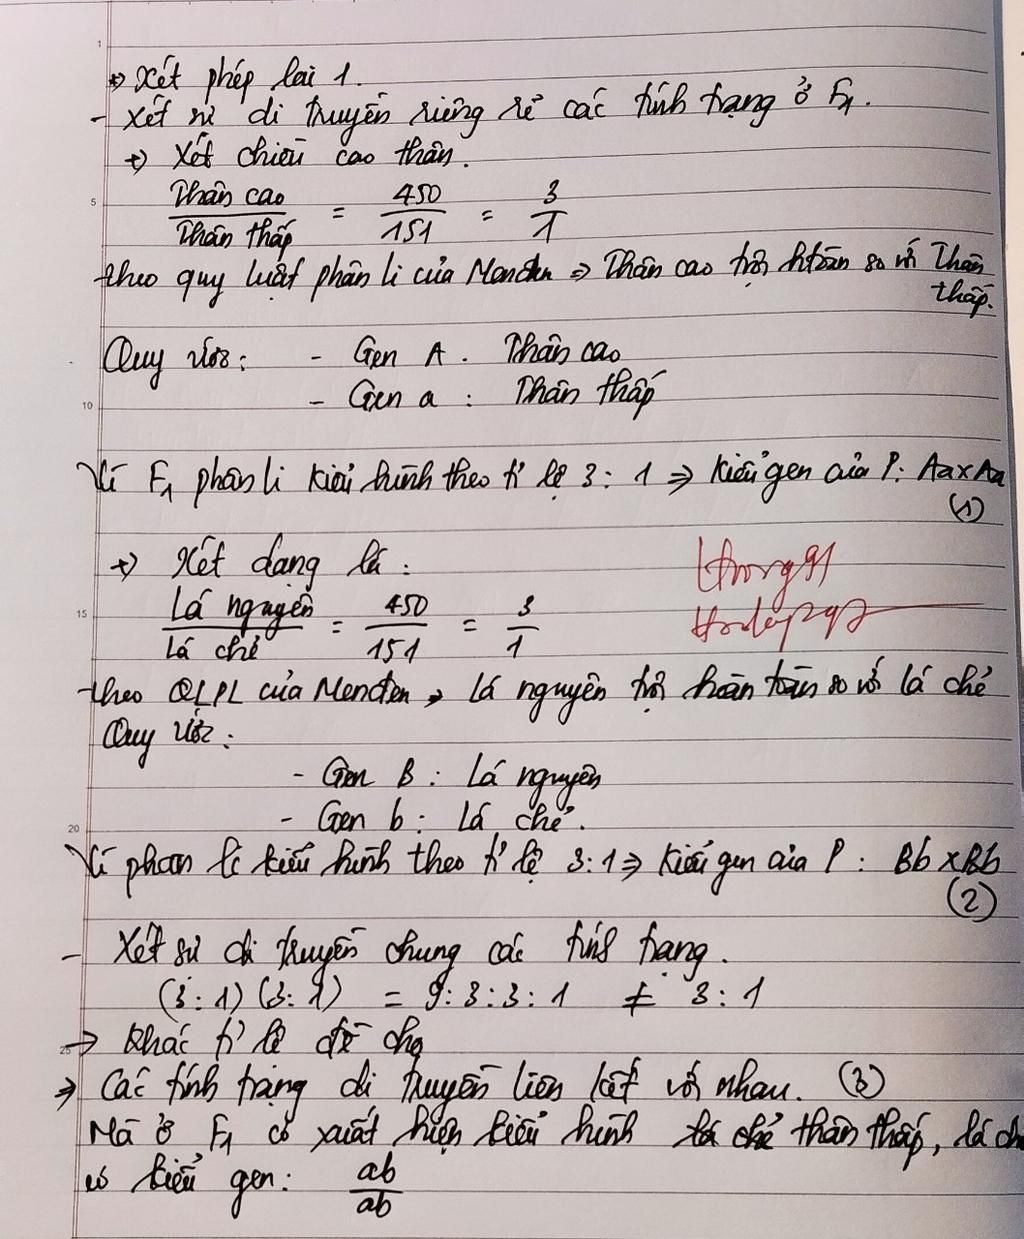 +) Xét phép lai 1.
- Xét sự di truyền riêng rẽ các tính trạng ở F1.
+) Xét chiều cao thân.
Thân cao / Thân thấp = 450 / 151 = 3 / 1
theo quy luật phân li của Menđen => Thân cao trội htoàn so với Thân thấp.
Quy ước: - Gen A. Thân cao
- Gen a : Thân thấp
Vì F1 phân li kiểu hình theo tỉ lệ 3 : 1 => kiểu gen của P: Aa x Aa
(1)
+) Xét dạng lá :
Lá nguyên / Lá chẻ = 450 / 151 = 3 / 1
theo QLPL của Menđen => lá nguyên trội hoàn toàn so với lá chẻ
Quy ước :
- Gen B : Lá nguyên
- Gen b : Lá chẻ.
Vì phan li kiểu hình theo tỉ lệ 3:1 => kiểu gen của P : Bb x Bb
(2)
- Xét sự di truyền chung các tính trạng.
(3 : 1) (3 : 1) = 9 : 3 : 3 : 1 ≠ 3 : 1
-> Khác tỉ lệ đề cho
=> Các tính trạng di truyền liên kết với nhau. (3)
Mà ở F1 có xuất hiện kiểu hình thân thấp, lá
có kiểu gen: ab / ab